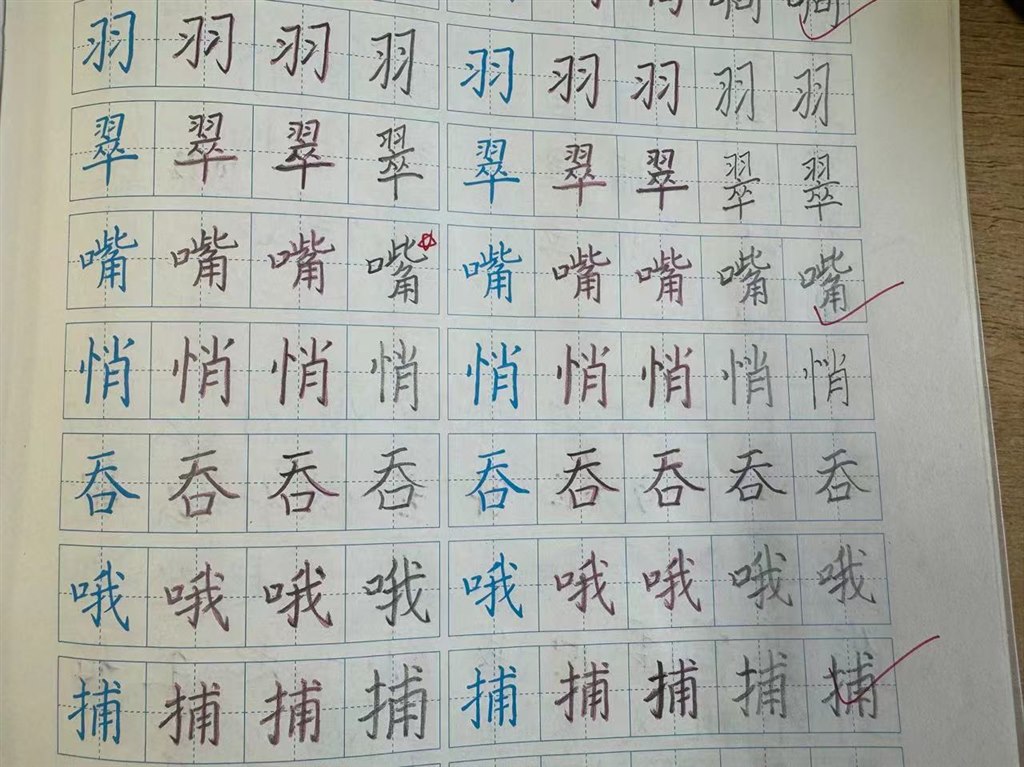 羽羽羽羽 羽羽羽羽羽
翠翠翠翠 翠翠翠翠翠
嘴嘴嘴嘴 嘴嘴嘴嘴嘴
悄悄悄悄 悄悄悄悄悄
吞吞吞吞 吞吞吞吞吞
哦哦哦哦 哦哦哦哦哦
捕捕捕捕 捕捕捕捕捕